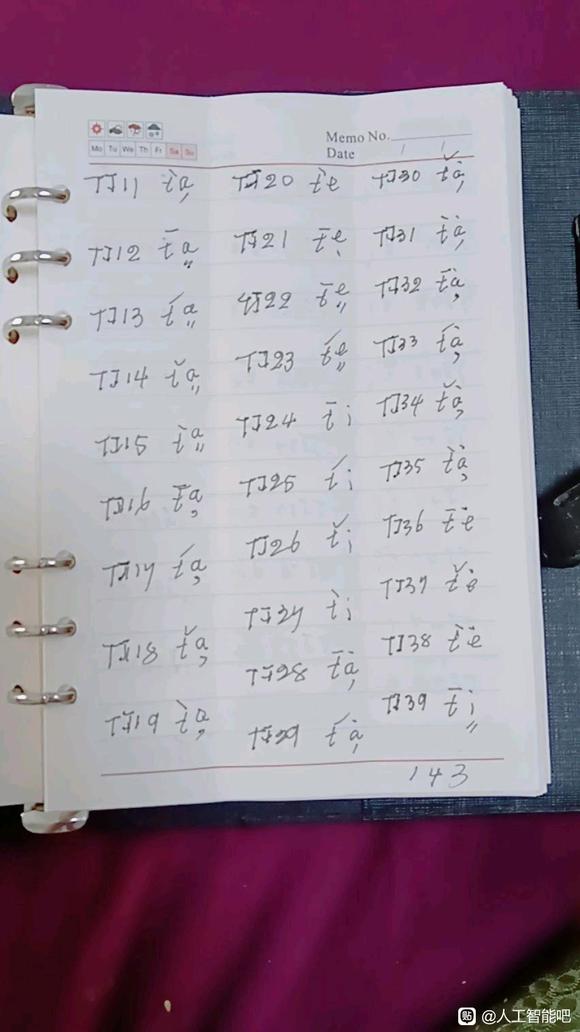 Mo Tu We Th Fr Sa Su
Memo No.
Date / /
TJ11 t̀a̦
TJ12 t̄a̎
TJ13 t́a〃
TJ14 t̆a〃
TJ15 t̀a〃
TJ16 t̄a̦
TJ17 t́a̦
TJ18 t̆a̦
TJ19 t̀a̦
TJ20 t̀e
TJ21 t̄ẹ
TJ22 t̄e〃
TJ23 t́e〃
TJ24 t̄i
TJ25 t́i
TJ26 t̆i
TJ27 t̀i
TJ28 t̄ȧ,
TJ29 t́ȧ,
TJ30 t̆ȧ,
TJ31 t̀ȧ,
TJ32 t̄ȧ,
TJ33 t́ȧ,
TJ34 t̆ȧ,
TJ35 t̀ȧ,
TJ36 t̄ė
TJ37 t̆ė
TJ38 t̀ė
TJ39 t̄i〃
143
贴 @人工智能吧